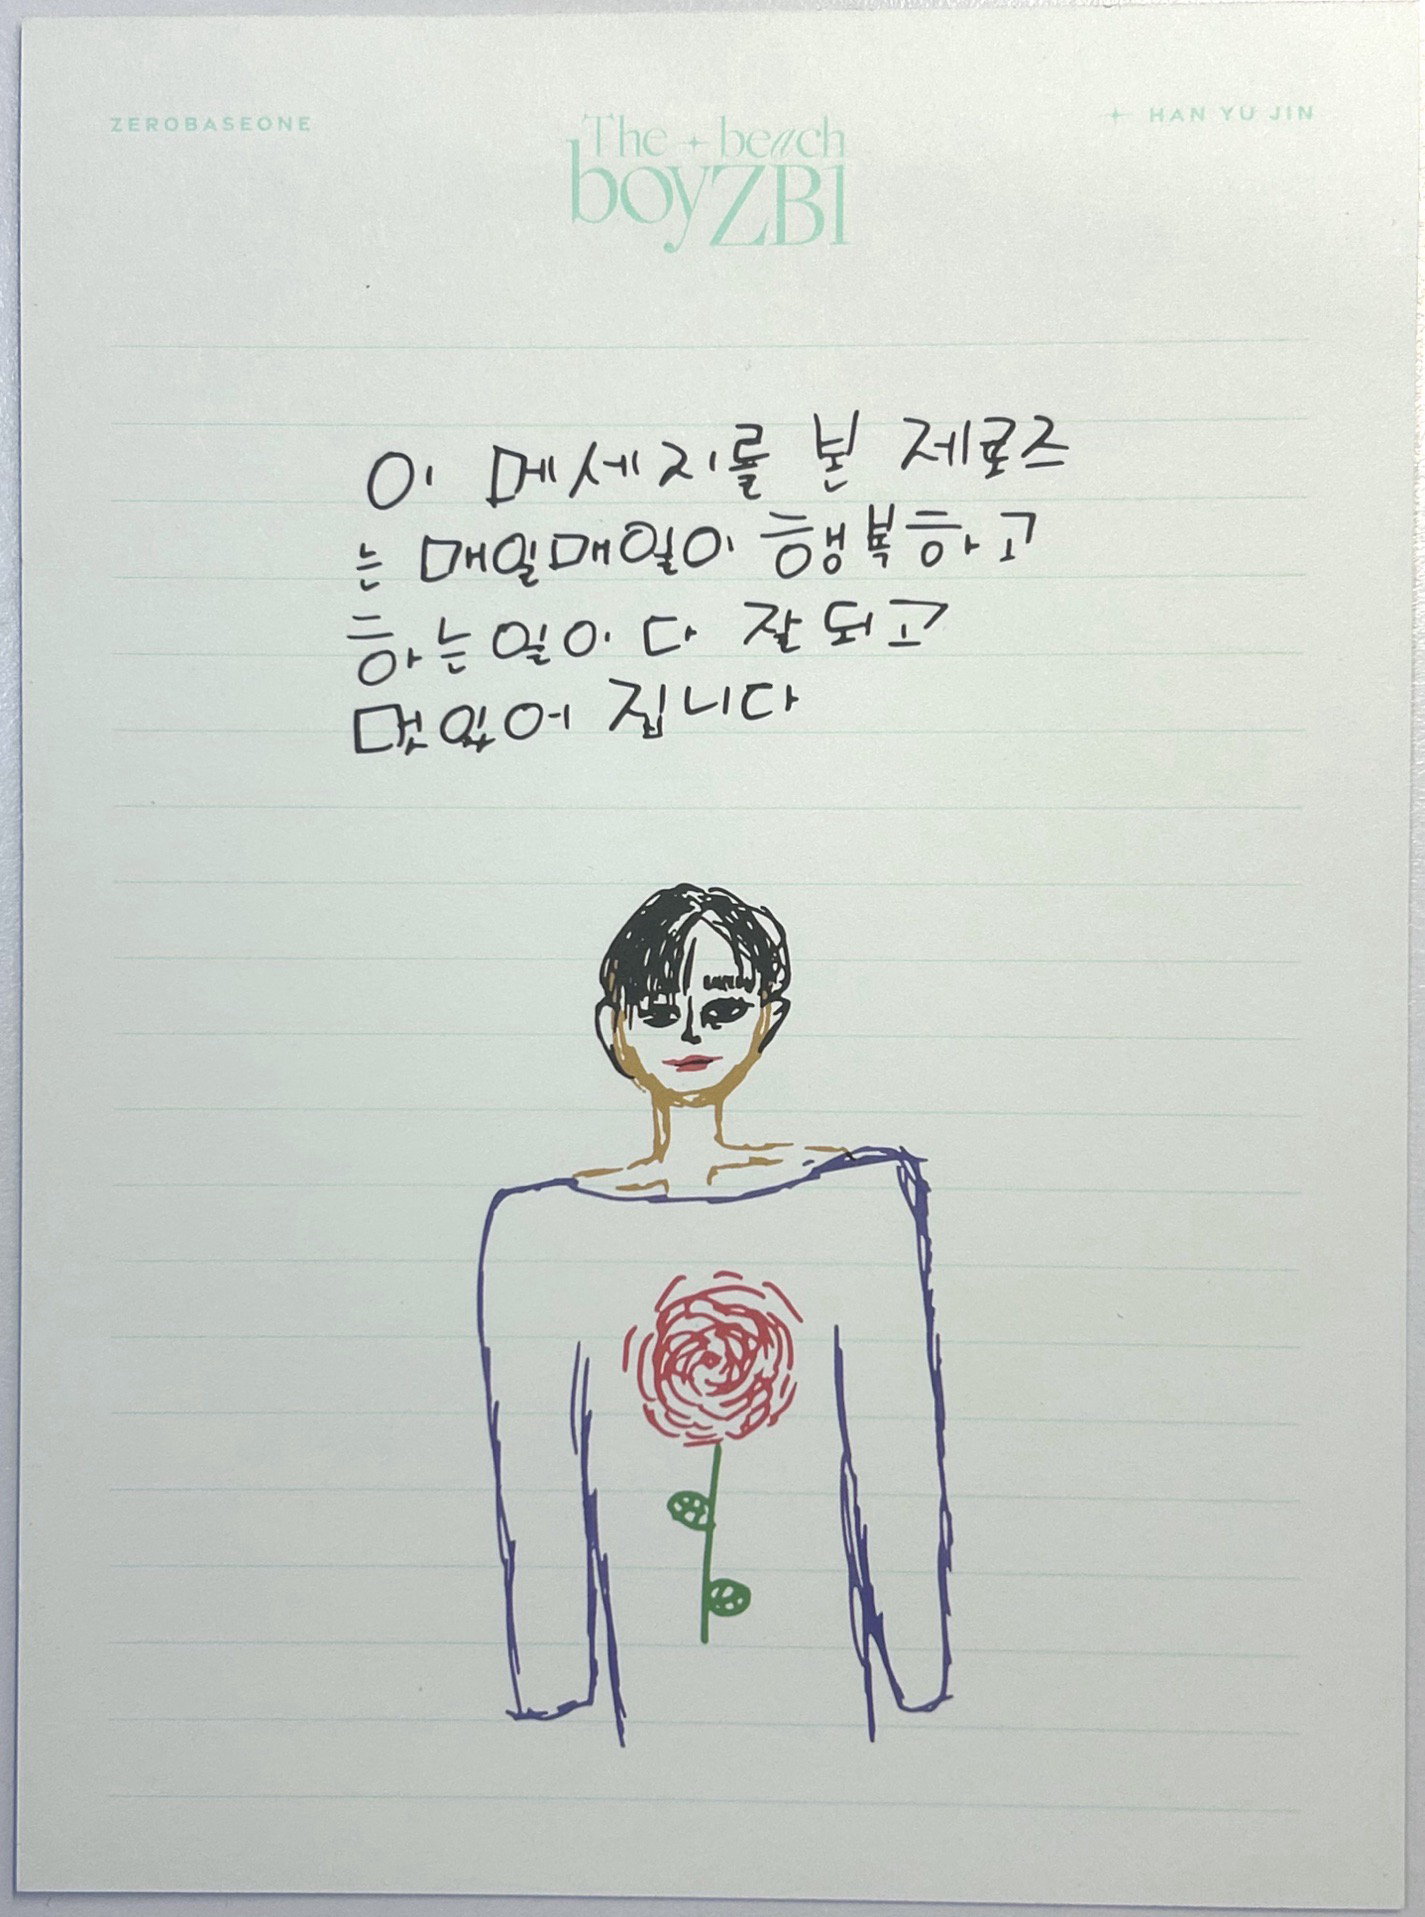 ZEROBASEONE
HAN YU JIN
The beach
boyZB1
이 메세지를 본 제로즈
는 매일매일이 행복하고
하는일이 다 잘 되고
멋있어 집니다